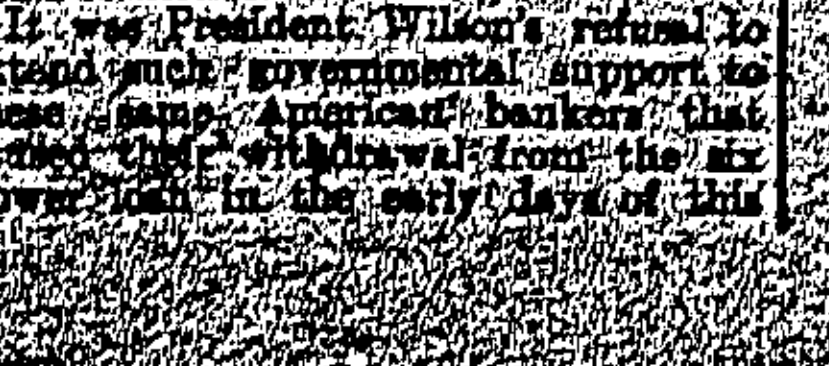 It was President Wilson's refusal to
tend such governmental support to
ese same American bankers that
used their withdrawal from the six
ower loan in the early days of this